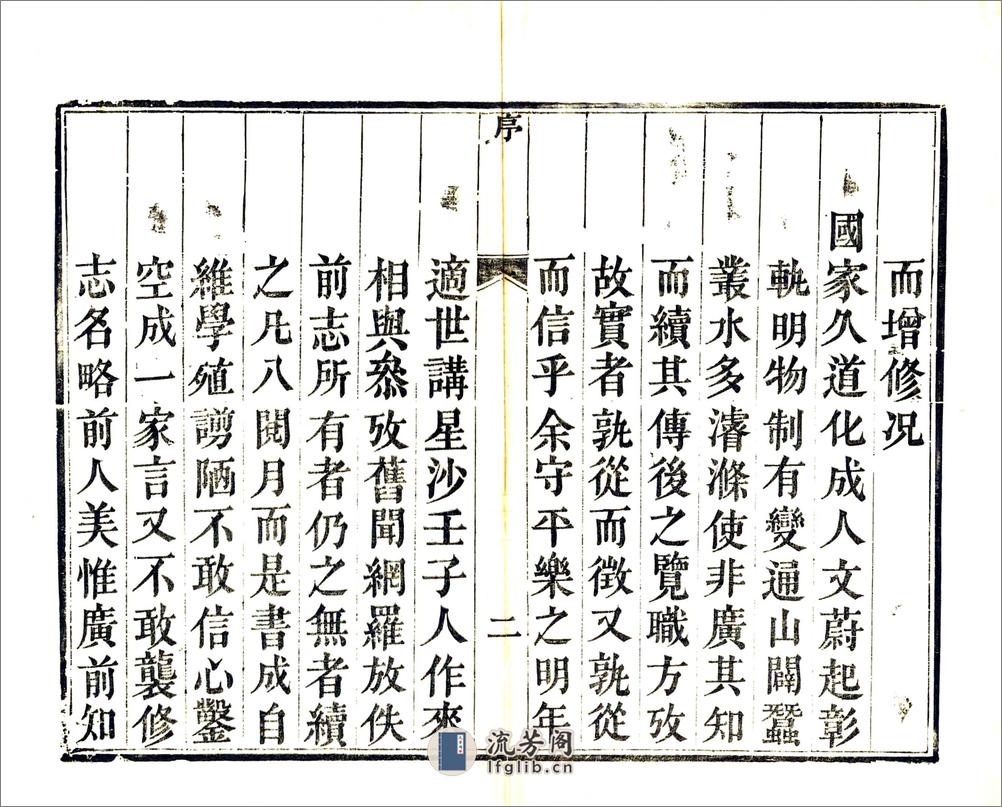 而增修况
國家久道化成人文蔚起彰
軌明物制有變通山闢蠶
叢水多濬滌使非廣其知
而續其傳後之覽職方攷
故實者孰從而徵又孰從
而信乎余守平樂之明年
序
二
適世講星沙壬子人作來
相與叅攷舊聞網羅放佚
前志所有者仍之無者續
之凡八閱月而是書成自
維學殖謭陋不敢信心鑿
空成一家言又不敢襲修
志名略前人美惟廣前知
流芳阁
lfglib.cn